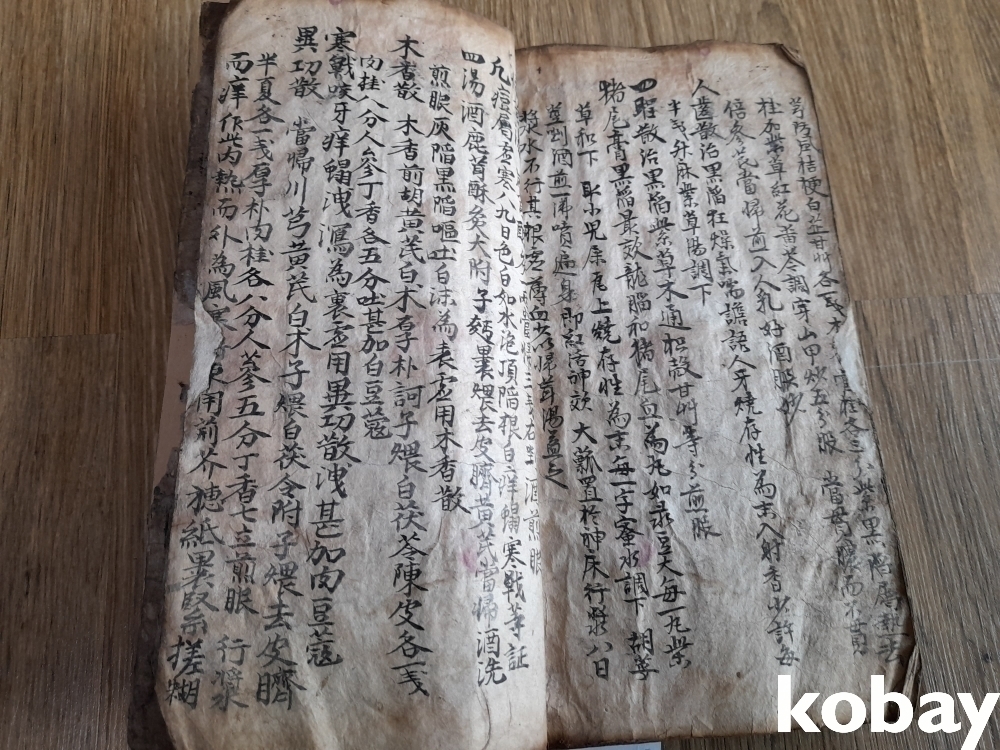 芎防風桔梗白芷甘艸各一戔木
桂加紫草紅花黃芩調穿山甲炒五分服 當貫膿而不貫
倍參芪當帰煎入人乳好酒服妙
人齒散治黑陷狂燥氣喘譫語人牙燒存性為末入射香少許每
半戔升麻紫草湯調下
四聖散治黑陷紫草木通枳殼甘艸等分煎服
猪尾膏黑陷最效龍腦和猪尾血為丸如菉豆大每一丸紫
草和下 取小兒尿尾上燒存性為末每一字蜜水調下 胡荽
草剉酒煎一沸噴遍身即紅活神效 大瓢置於神床行漿八日
漿水不行其根窠
凡痘屬虛寒八九日色白如水泡頂陷根白痒蝎寒戰等証
四湯酒鹿茸酥炙大附子麪裹煨去皮臍黃芪當帰酒洗
煎服灰陷黑陷嘔吐白沫為表虛用木香散
木香散 木香前胡黃芪白朮厚朴訶子煨白茯苓陳皮各一戔
肉桂八分人參丁香各五分吐甚加白豆蔻
寒戰咬牙痒蝎洩瀉為裏虛用異功散洩甚加肉豆蔻
異功散 當帰川芎黃芪白朮子煨白茯令附子煨去皮臍
半夏各一戔厚朴肉桂各八分人蔘五分丁香七立煎服 行漿
而痒作此內熱而外為風寒 用荊芥穗紙裹緊搓糊